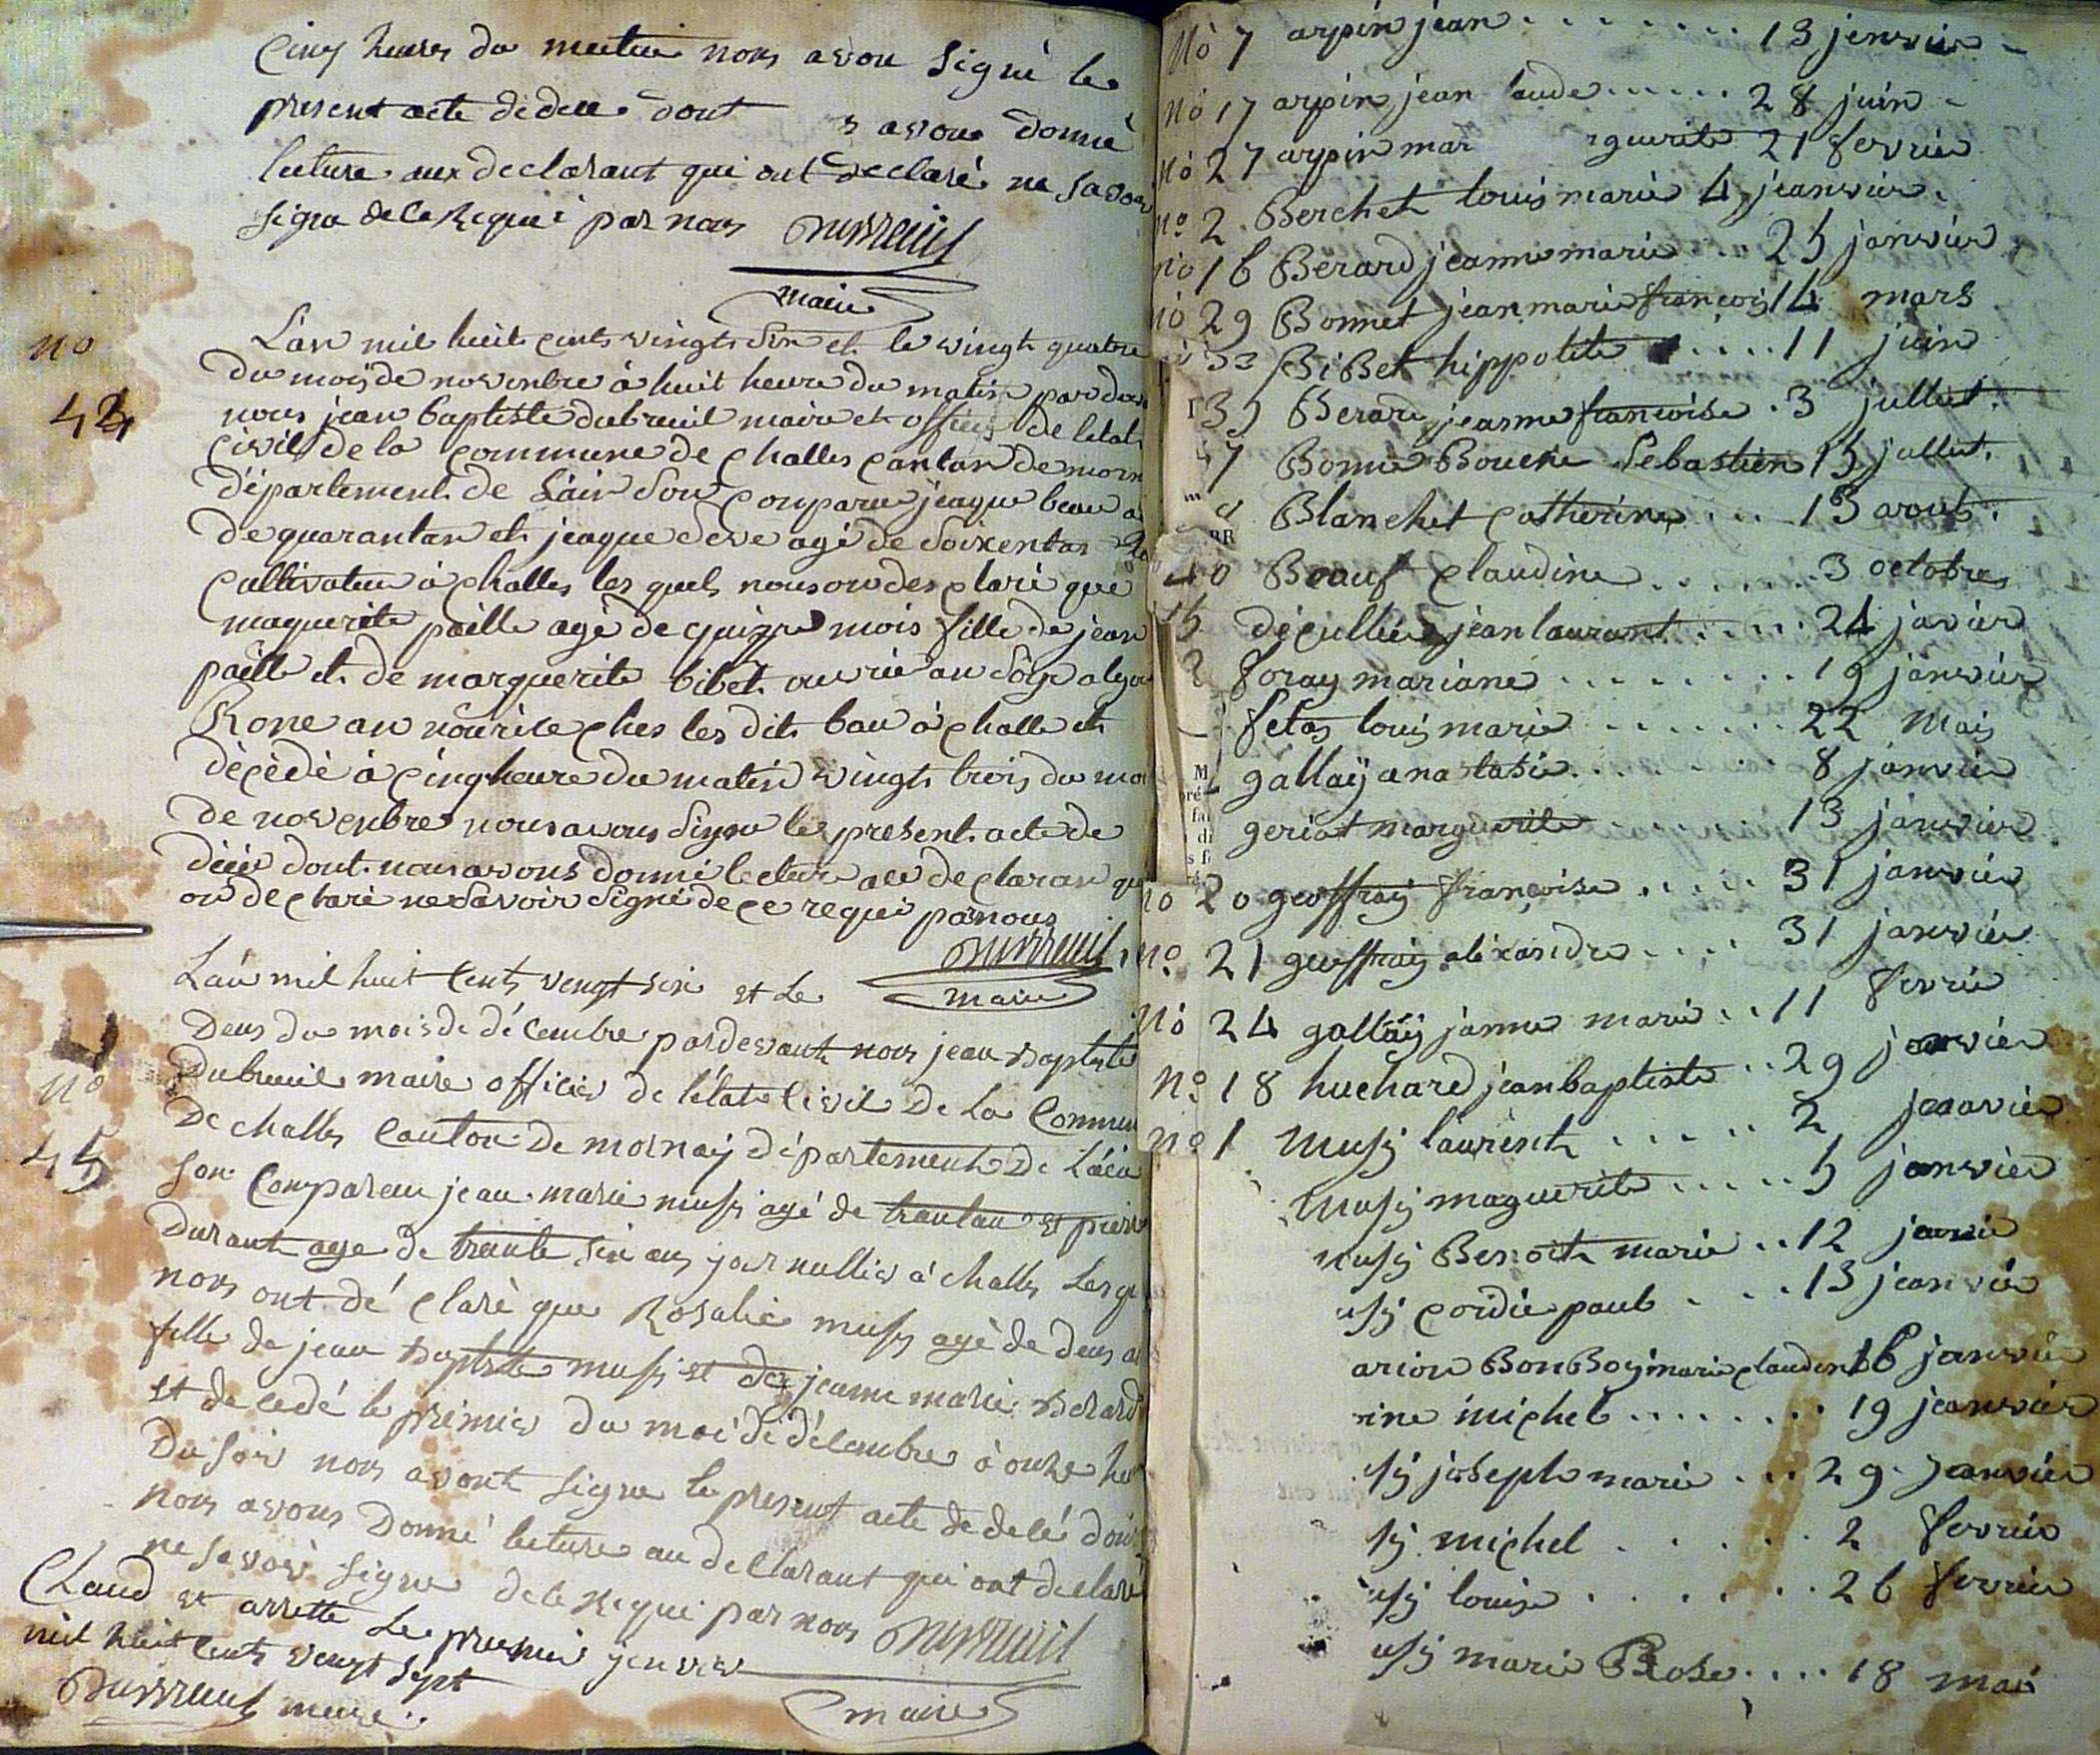 Cinq heures du matin nous avon signé le
present acte de dece dont s avons donné
lecture aux declarant qui ont declaré ne savoir
signe de ce Requi par nous Dubreuil
maire
no
44
L'an mil huit cents vingt six et le vingt quatre
du mois de novembre à huit heure du matin par devan
nous jean baptiste dubreuil maire et officie de letat
Civil de la commune de challes canton de morn
département de Lain son comparu jeaque beau a
de quarantan et jeaque deve agé de soixentan
cultivateu à challes les quels nous on des claré que
maguerite paille agé de quinze mois fille de jean
paille et de marguerite bibet ouvrié an soy a lyon
Rone an nourice ches les dit bau à challe et
décédé à cinq heure du matin vingt trois du moi
de novenbre nous avons signe le present acte de
décé dont nous avons donné lecture au declaran qui
on declaré ne savoir signé de ce requi par nous
Dubreuil
maire
no
45
L'an mil huit Cents vengt six et Le
Deus du mois de décembre pardevant nous jean Baptiste
Dubreuil maire officier de l'état Civil De la Commun
De challes Canton De mornay département De Lain
son Compareu jean marie mussy agé de trantan et pierre
Durant age de trante six ans journallié à challes Lesque
nous ont déclaré que Rosalie mussy agé de deus an
fille de jean Baptiste mussy et de jeanne marie Berard
et de cedé le premier du moi de décembre à onze heu
Du soir nous avont signe le present acte de décé don
nous avons Donné lecture au declarant qui ont declaré
ne savoir signe de ce Requi par nous Dubreuil
maire
Claud et arretté Le premié jenvié
mil huit cents vengt sept
Dubreuil meire
No 7 arpin jean 13 jenvier
No 17 arpin jean laude 28 juin
No 27 arpin mar rguerite 21 fevrier
No 2 Berchet louis marie 4 jeanvier
No 16 Berard jeanne marie 25 janvier
No 29 Bonnet jean marie françois 14 mars
33 BiBet hippolite 11 juin
35 Berard jeanne francoise 3 jullet
7 Bonne Bouche Sebastien 15 jullet
Blanchet catherine 13 aout
40 Beauf claudine 3 octobre
15 décullié jean laurant 24 javier
2 foray mariane 19 janvier
fetas louis marie 22 Mais
gallaÿ anatasie 8 janvier
geriat marguerite 13 janvier
no 20 geoffray françoise 31 janvier
No 21 geoffray aléxandre 31 janvier
No 24 gallaÿ janne marie 11 fevrié
No 18 huchard jean baptiste 29 janvier
No 1 Mussy laurent 2 janvier
Mussy maguerite 5 janvier
mussy Benoit marie 12 janvie
ussy coidie paul 13 jeanvié
arion BonBoy marie claudine 16 janvie
rine michel 19 jeanvier
ssy joseph marie 29 Janvier
sy michel 2 fevrié
ussy louise 26 fevrier
ussy marie Rose 18 mai